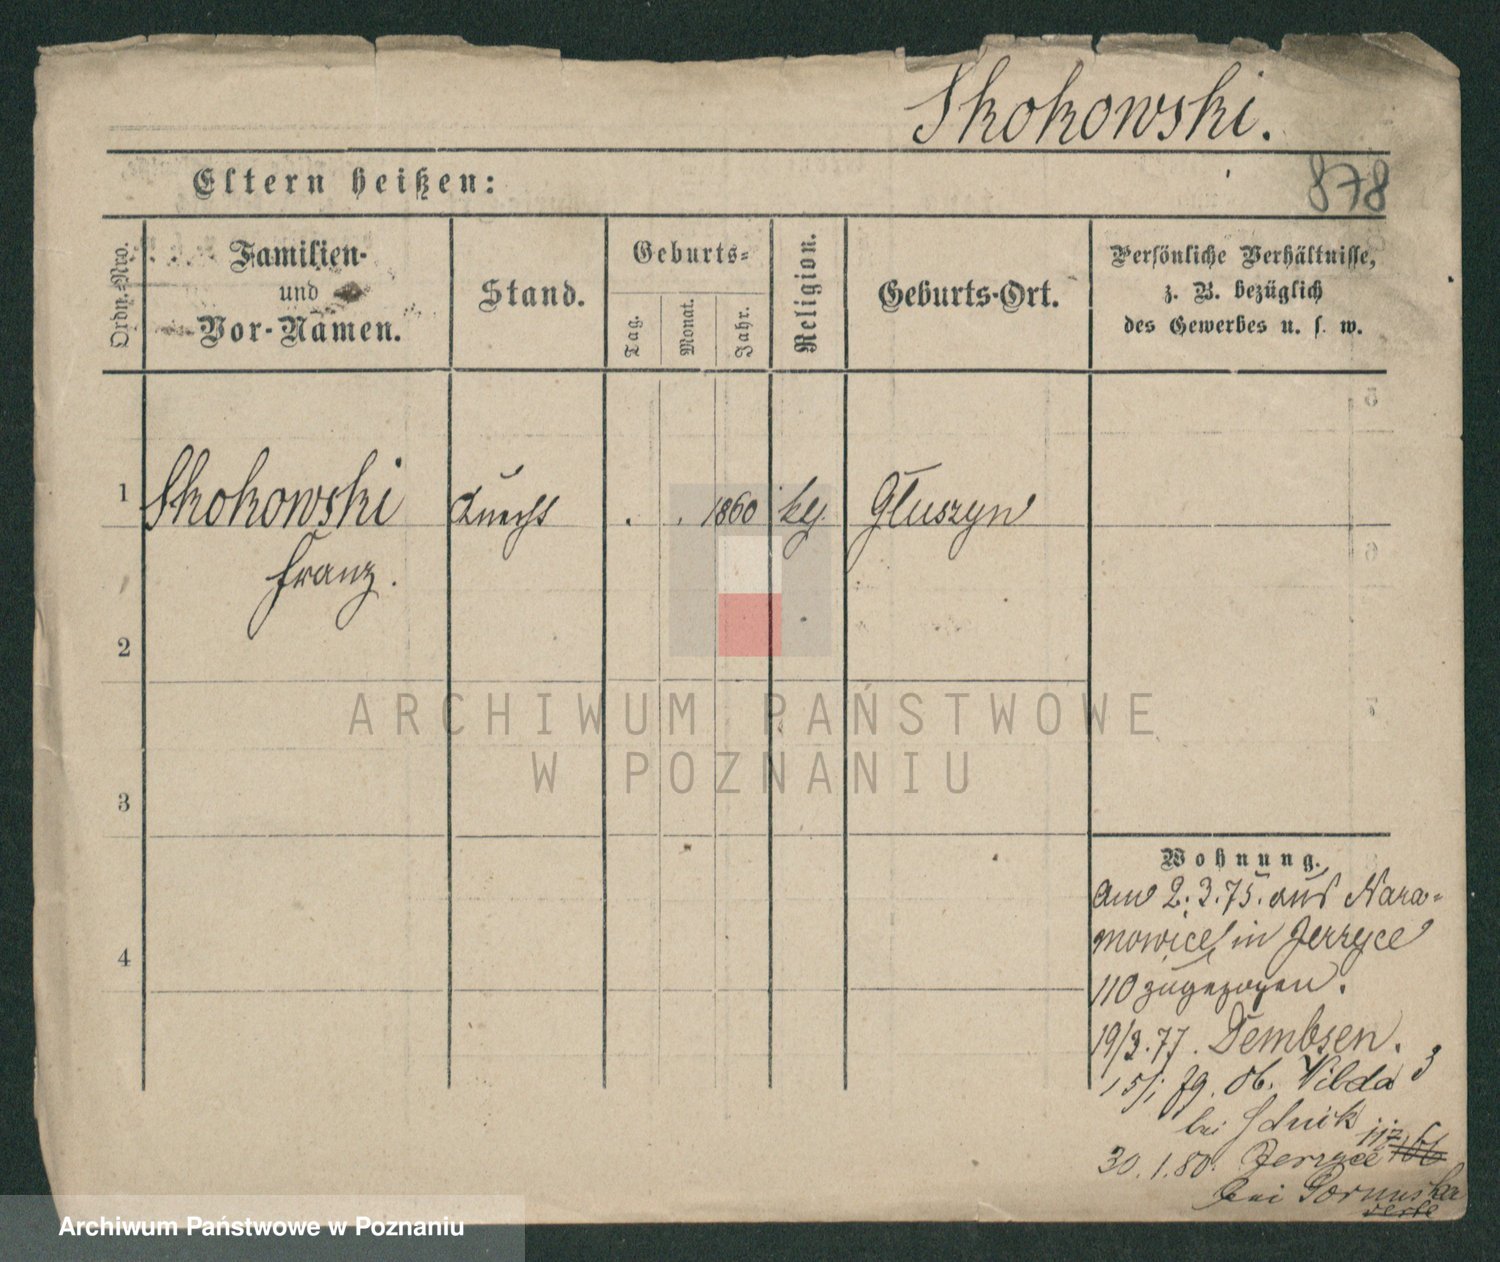 Skokowski.
Eltern heißen:
878
Ordn.-Nro.
Familien-
und
Vor-Namen.
Stand.
Geburts-
Tag.
Monat.
Jahr.
Religion.
Geburts-Ort.
Persönliche Verhältnisse,
z. B. bezüglich
des Gewerbes u. s. w.
1
Skokowski
Franz.
Knecht
1860
Głuszyn
2
3
4
ARCHIWUM PAŃSTWOWE
W POZNANIU
Wohnung.
am 2.3.75. aus Nara-
mowice in Jerzyce
110 zugezogen.
19/3.77. Dembsen.
15/1 79. Ob. Wilda 3
bei
30.1.80. Jerzyce 117
bei
Archiwum Państwowe w Poznaniu